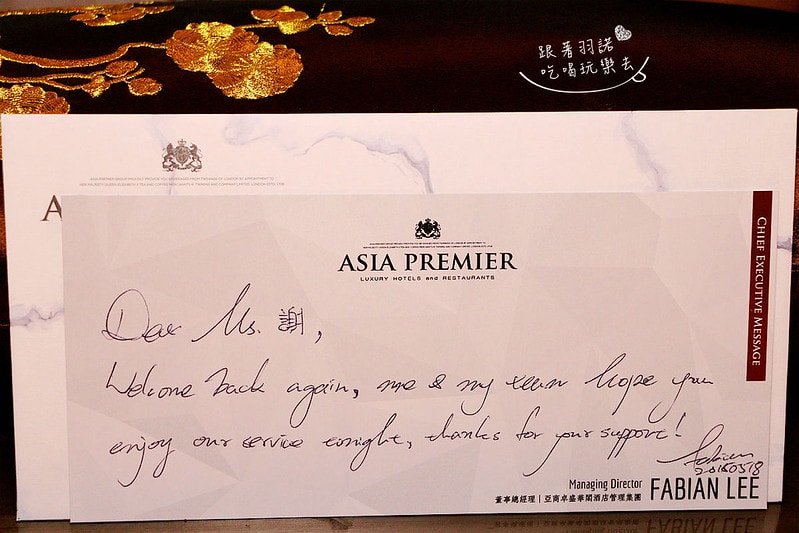 跟著羽諾
吃喝玩樂去
ASIA PREMIER
LUXURY HOTELS and RESTAURANTS
CHIEF EXECUTIVE MESSAGE
Dear Ms. 謝,
Welcome back again, me & my team hope you
enjoy our service tonight, thanks for your support!
Fabian
20180518
Managing Director FABIAN LEE
董事總經理|亞商卓盛華閣酒店管理集團